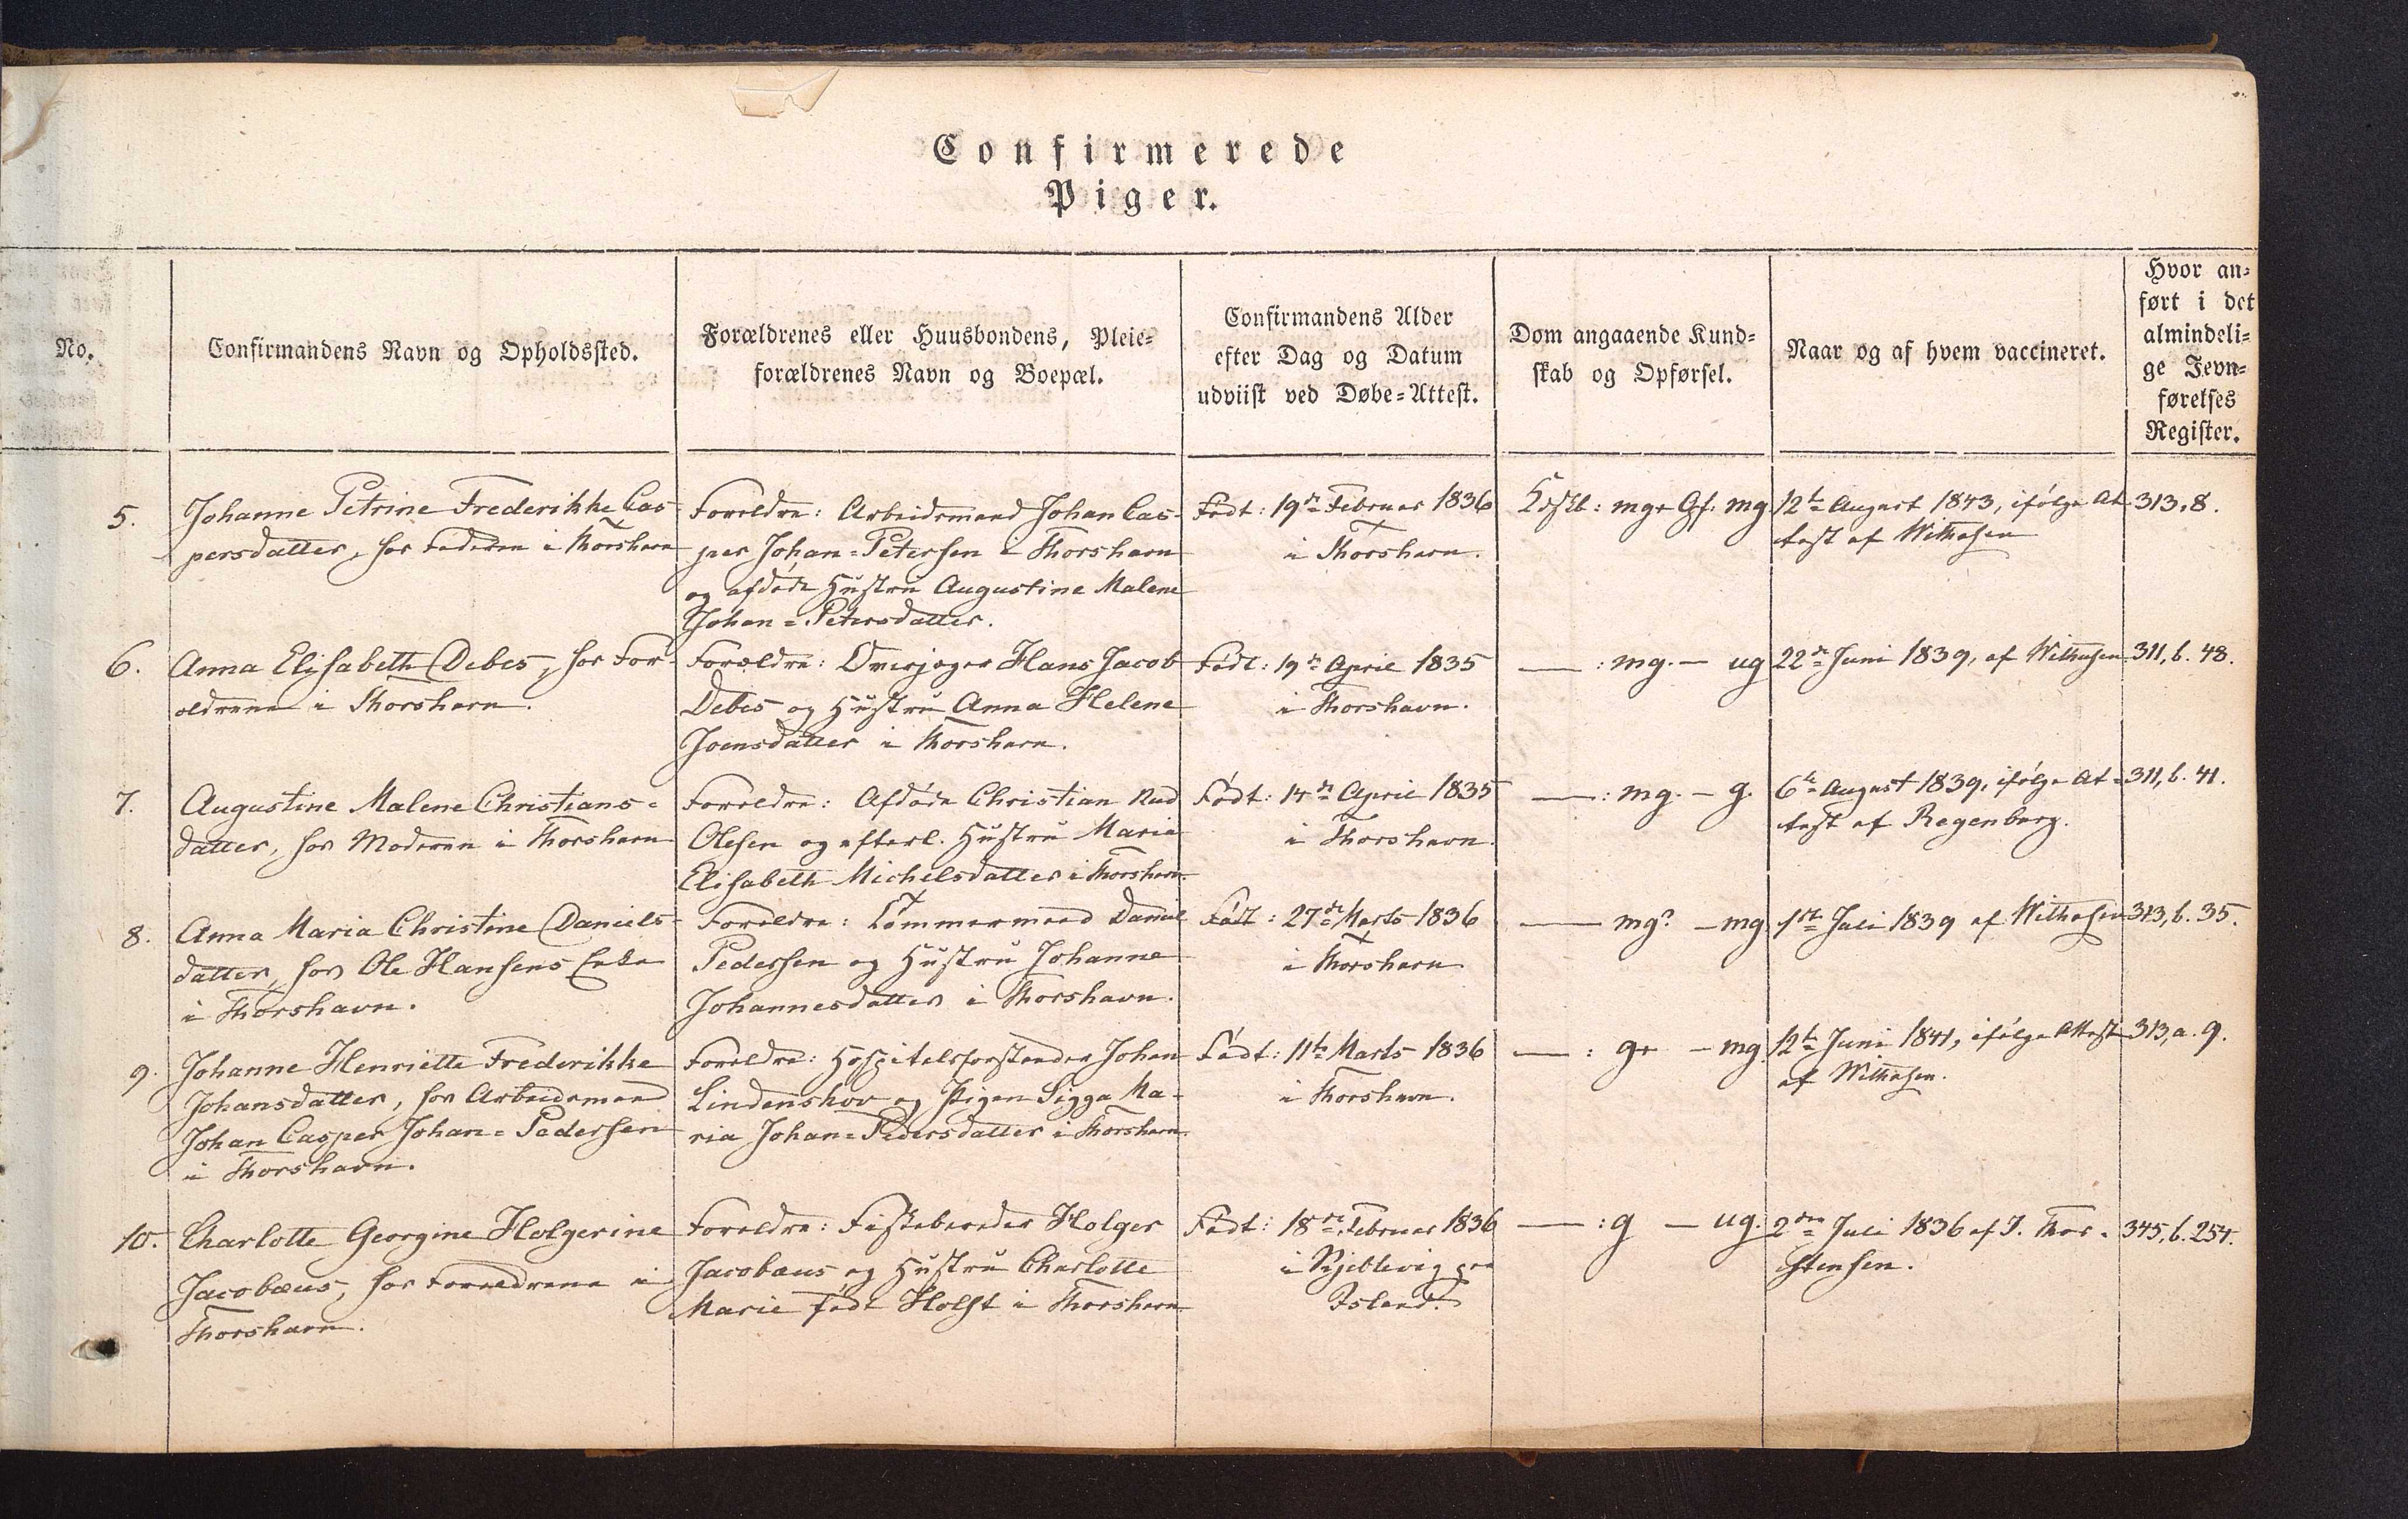 Confirmerede
Piger.
No.
Confirmandens Navn og Opholdssted.
Forældrenes eller Huusbondens, Pleie-
forældrenes Navn og Boepæl.
Confirmandens Alder
efter Dag og Datum
udviist ved Døbe-Attest.
Dom angaaende Kund-
skab og Opførsel.
Naar og af hvem vaccineret.
Hvor an-
ført i det
almindeli-
ge Jevn-
førelses
Register.
5.
Johanne Petrine Frederikke Cas-
persdatter, hos Faderen i Thorshavn
Forældre: Arbeidsmand Johan Cas-
per Johan-Petersen i Thorshavn
og afdøde Hustru Augustine Malene
Johan-Petersdatter.
Født: 19de Februar 1836
i Thorshavn.
Kdskb: mg+ Gf: mg
12te August 1843, ifølge At-
test af
313, 8.
6.
Anna Elisabeth Debes, hos For-
ældrene i Thorshavn.
Forældre: Overjæger Hans Jacob
Debes og Hustru Anna Helene
Joensdatter i Thorshavn.
Født: 19de April 1835
i Thorshavn.
— : mg. — ug
22de Juni 1839, af
311, b. 48.
7.
Augustine Malene Christians-
datter, hos Moderen i Thorshavn
Forældre: Afdøde Christian Rud
Olesen og efterl. Hustru Maria
Elisabeth Michelsdatter i Thorshavn.
Født: 14de April 1835
i Thorshavn.
— : mg. — g.
6te August 1839, ifølge At-
test af Regenburg.
311, b. 41.
8.
Anna Maria Christine Daniels-
datter, hos Ole Hansens Enke
i Thorshavn.
Forældre: Tømmermand Daniel
Pedersen og Hustru Johanne
Johannesdatter i Thorshavn.
Født: 27de Marts 1836
i Thorshavn
— mg? — mg
1ste Juli 1839 af
313, b. 35.
9.
Johanne Henriette Frederikke
Johansdatter, hos Arbeidsmand
Johan Casper Johan-Pedersen
i Thorshavn.
Forældre: Hospitalsforstander Johan
Lindenskov og Pigen Sigga Ma-
ria Johan-Pedersdatter i Thorshavn.
Født: 11te Marts 1836
i Thorshavn.
— : g+ — mg.
12te Juni 1841, ifølge Attest
af
313, a. 9.
10.
Charlotte Georgine Holgerine
Jacobæus, hos Forældrene i
Thorshavn.
Forældre: Holger
Jacobæus og Hustru Charlotte
Marie født Holst i Thorshavn
Født: 18de Februar 1836
i paa
Island.
— : g — ug.
2den Juli 1836 af J. Thor-
stensen.
345, b. 254.